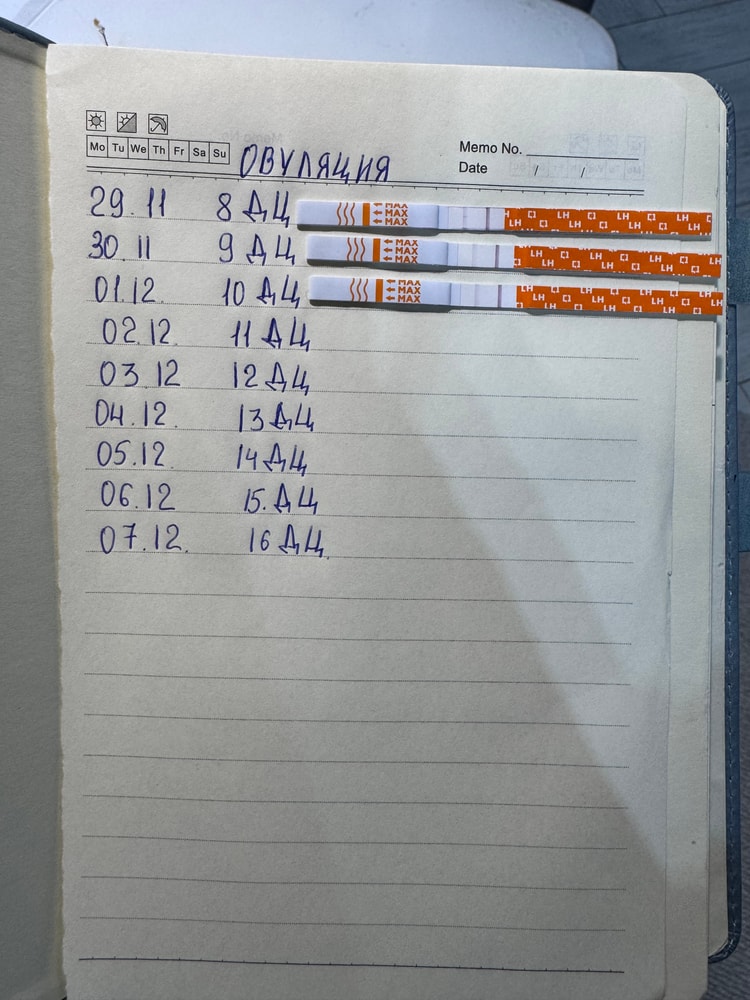 Mo Tu We Th Fr Sa Su
ОВУЛЯЦИЯ
Memo No.
Date / /
29.11 8 ДЦ MAX MAX MAX LH LH LH LH LH LH
30.11 9 ДЦ MAX MAX MAX LH LH LH LH LH LH
01.12. 10 ДЦ MAX MAX MAX LH LH LH LH LH LH
02.12. 11 ДЦ
03.12 12 ДЦ
04.12. 13 ДЦ
05.12. 14 ДЦ
06.12 15. ДЦ
07.12. 16 ДЦ